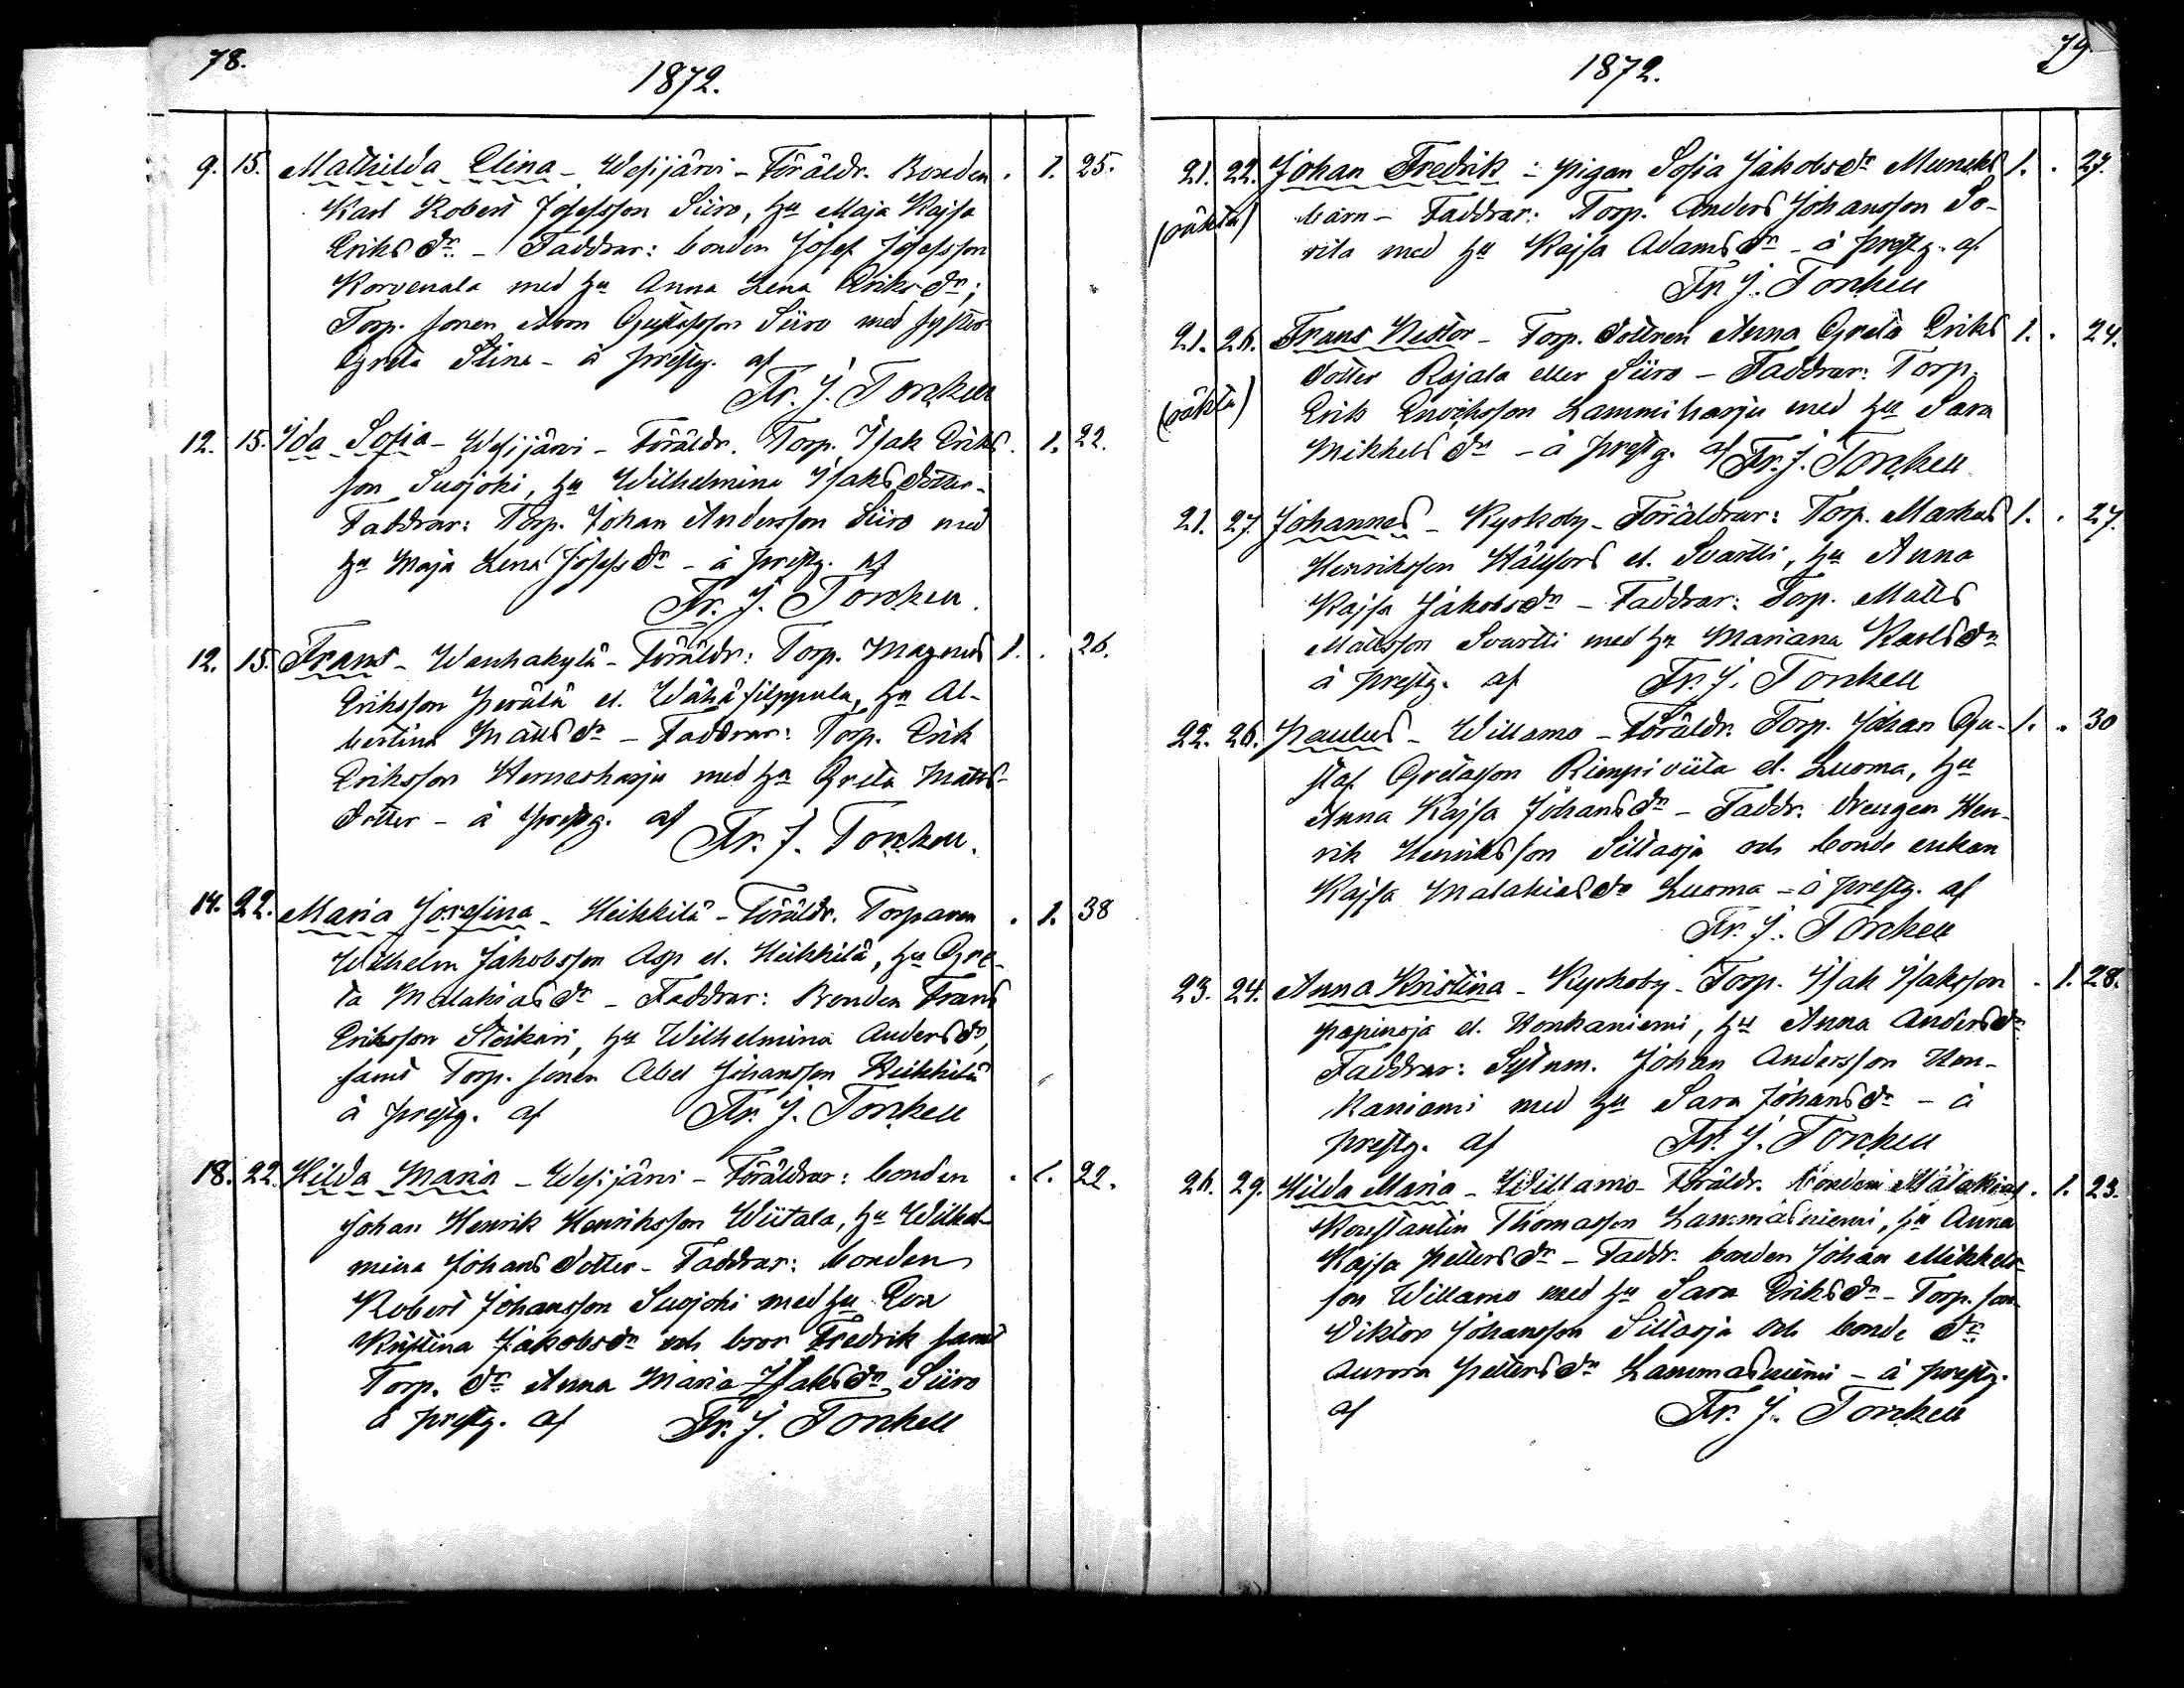 78.
1872.
9. 15. Mathilda Elina - Wesijärvi - Föräldr. Bonden . 1. 25.
Karl Robert Josefsson Siiro, hu Maja Kajsa
Eriks dr. - Faddrar: bonden Josef Josefsson
Korvenala med hu Anna Lena Eriks dr;
Torp. sonen Aron Gustafsson Siiro med syster
Greta Stina - å prestg. af
Fr. J. Torckell
12. 15. Ida Sofia - Wesijärvi - Föräldr. Torp. Isak Eriks . 1. 22.
son Suojoki, hu Wilhelmina Isaks dotter -
Faddrar: Torp. Johan Andersson Siiro med
hu Maja Lena Josefs dr - å prestg. af
Fr. J. Torckell.
12. 15. Frans - Wanhakylä - Föräldr: Torp. Magnus 1. . 26.
Eriksson Perälä el. Wähä filppula, hu Al-
bertina Matts dr - Faddrar: Torp. Erik
Eriksson Hernesharju med hu Greta Matts-
dotter - å prestg. af
Fr. J. Torckell.
14. 22. Maria Josefina - Heikkilä - Föräldr. Torparen . 1. 38
Wilhelm Jakobsson Asp el. Heikkilä, hu Gre-
ta Malakias dr - Faddrar: Bonden Frans
Eriksson Steikari, hu Wilhelmina Anders dr,
samt Torp. sonen Abel Johansson Heikkilä
å prestg. af Fr. J. Torckell
18. 22. Hilda Maria - Wesijärvi - Föräldrar: bonden . 1. 22.
Johan Henrik Henriksson Wiitala, hu Wilhel-
mina Johans dotter - Faddrar: bonden
Robert Johansson Suojoki med hu Eva
Kristina Jakobs dr och bror Fredrik samt
Torp. dr Anna Maria Isaks dr Siiro
å prestg. af Fr. J. Torckell
79.
1872.
21. 22. Johan Fredrik - pigan Sofia Jakobs dr Muncks 1. . 27.
(oäkta) barn - Faddrar: Torp. Anders Johansson So-
rila med hu Kajsa Adams dr - å prestg. af
Fr. J. Torckell
21. 26. Frans Nestor - Torp. dottren Anna Greta Eriks 1. . 24.
dotter Rajala eller Siiro - Faddrar: Torp.
(oäkta) Erik Enriksson Lammiharju med hu Sara
Mikkels dr - å prestg. af Fr. J. Torckell
21. 27. Johannes - Kyrkoby - Föräldrar: Torp. Markus 1. . 27.
Henriksson Hällfors el. Svartti, hu Anna
Kajsa Jakobs dr - Faddrar: Torp. Matts
Mattsson Svartti med hu Mariana Karls dr
å prestg. af Fr. J. Torckell
22. 26. Paulus - Willamo - Föräldr. Torp. Johan Gu- 1. . 30
staf Gretasson Rimpiviita el. Luoma, hu
Anna Kajsa Johans dr - Faddr. drengen Hen-
rik Henriksson Sillasja och bonde enkan
Kajsa Malakias dr Luoma - å prestg. af
Fr. J. Torckell
23. 24. Anna Kristina - Kyrkoby - Torp. Isak Isaksson . 1. 28.
Papinoja el. Honkaniemi, hu Anna Anders dr
Faddrar: Sytnm. Johan Andersson Hon-
kaniemi med hu Sara Johans dr - å
prestg. af Fr. J. Torckell
26. 29. Hilda Maria - Willamo - Föräldr. bonden Malakias . 1. 23.
Konstantin Thomasson Lammasniemi, hu Anna
Kajsa Petters dr - Faddr. bonden Johan Mikkels-
son Willamo med hu Sara Eriks dr - Torp. son
Viktor Johansson Sillasja och bonde dr
Aurora Petters dr Lammasniemi - å prestg.
af Fr. J. Torckell